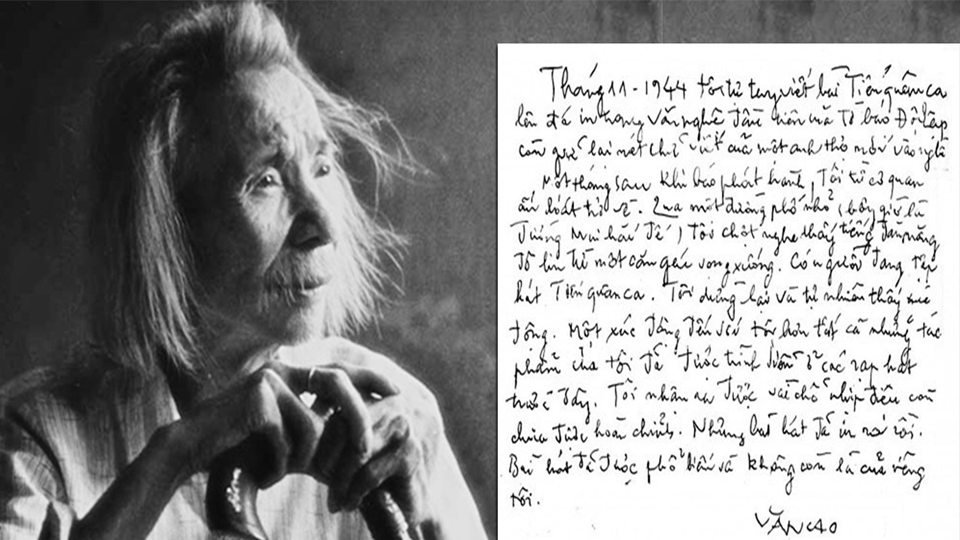 Tháng 11-1944 tôi tự tay viết bài Tiến quân ca
lên đá in trong văn nghệ đầu tiên của tờ báo Độc lập
còn giữ lại nét chữ viết của một anh thợ mới vào nghề
Một tháng sau khi báo phát hành, Tôi từ cơ quan
ấn loát trở về. Qua một đường phố nhỏ (bây giờ là
đường Mai hắc đế) tôi chợt nghe thấy tiếng đàn măng
đô lin từ một căn gác vọng xuống. Có người đang tập
hát Tiến quân ca. Tôi dừng lại và tự nhiên thấy xúc
động. Một xúc động đến với tôi hơn tất cả những tác
phẩm của tôi đã được trình diễn ở các rạp hát
trước đây. Tôi nhận ra được vài chỗ nhịp điệu còn
chưa được hoàn chỉnh. Những bài hát đã in ra rồi.
Bài hát đã được phổ biến và không còn là của riêng
tôi.
VĂN CAO